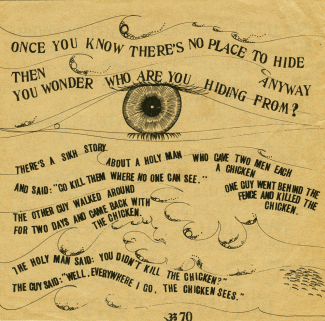 ONCE YOU KNOW THERE'S NO PLACE TO HIDE
THEN
YOU WONDER WHO ARE YOU HIDING FROM? ANYWAY
THERE'S A SIKH STORY
ABOUT A HOLY MAN WHO GAVE TWO MEN EACH
A CHICKEN
AND SAID: "GO KILL THEM WHERE NO ONE CAN SEE."
ONE GUY WENT BEHIND THE
FENCE AND KILLED THE
CHICKEN.
THE OTHER GUY WALKED AROUND
FOR TWO DAYS AND CAME BACK WITH
THE CHICKEN.
THE HOLY MAN SAID: YOU DIDN'T KILL THE CHICKEN?"
THE GUY SAID: "WELL, EVERYWHERE I GO, THE CHICKEN SEES."
70